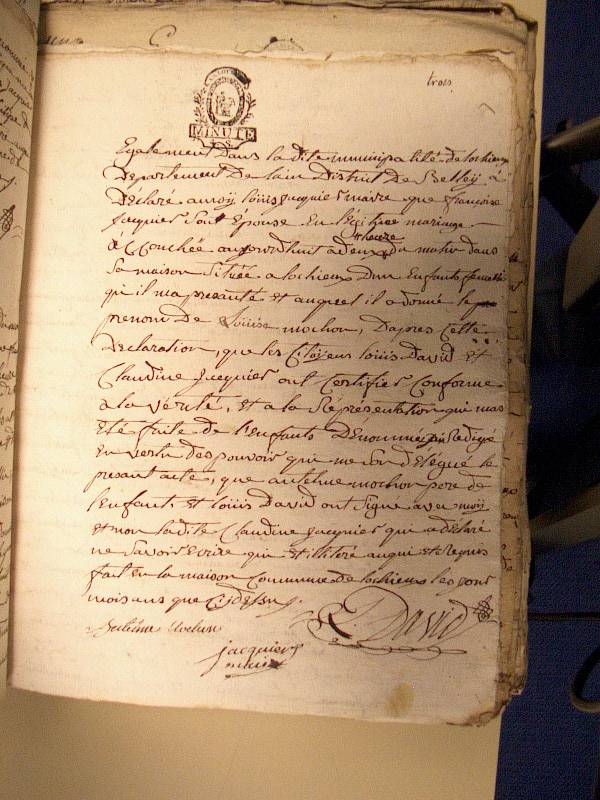 trois
MINUTE
Egalement dans la dite municipalité de lochieu
Departement de lain District de Belley à
Déclaré a moy louis jacquier maire que françoise
jacquier sont épouse en legitime mariage
a Couchée aujourdhuit a deux heure du matin dans
Sa maison Située a lochieu dun Enfants femelle
qu'il ma presanté et auquel il a donné le
prenom De Louise mochon, Dapres Cette
Declaration, que les Citoyens louis David et
Claudine jacquier ont Certifier Conforme
a la vérité, et a la Représentation qui mas
Eté faite de l'enfants Denommé jai Redigé
En vertu des pouvoir qui me son délégué le
presant acte, que antelme mochon pere de
l'enfant et louis David ont Signe avec moy
et non ladite Claudine jacquier qui a déclaré
ne Savoir Ecrire qui Est illitéré au qui et Requis
fait En la maison Commune de lochieu les jour
mois ans que Cy desus
antelme mochon
L. David
jacquier
maire